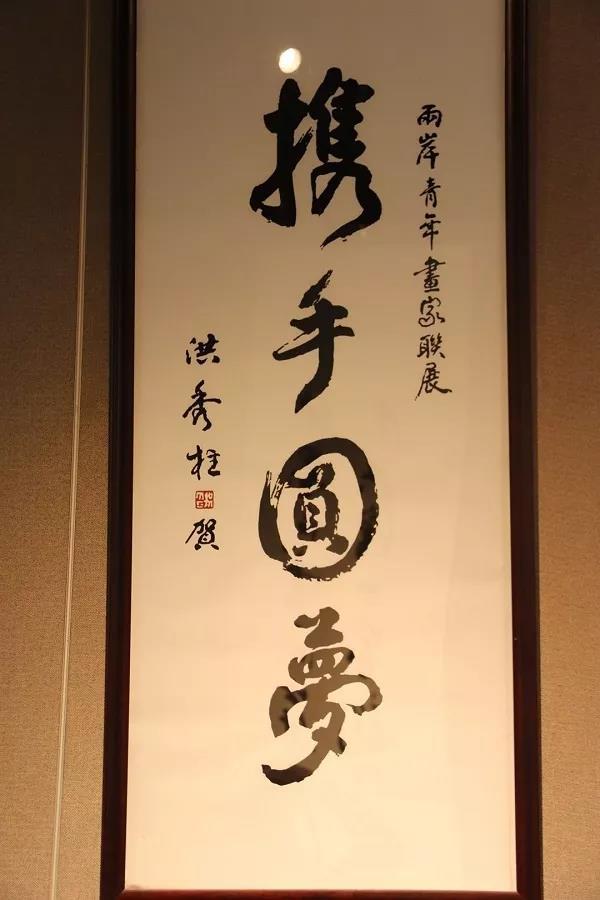 兩岸青年畫家聯展
携手圓夢
洪秀柱
賀